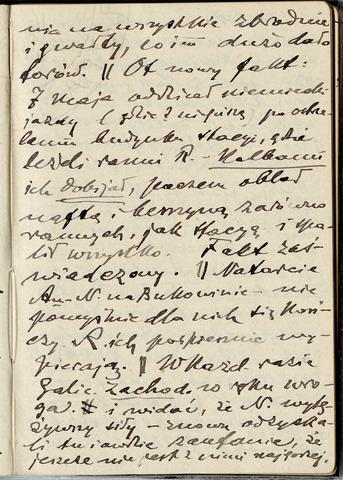 nia na wszystkie zbrodnie
i gwałty, co im dużo dało
torów. || Ot nowy fakt:
7 maja oddział niemieckiej
jazdy (gdzie? nie piszą) po ostrze-
laniu budynku stacyi, gdzie
leżeli ranni R. – kolbami
ich dobijał, poczem oblał
naftą i benzyną zarówno
rannych, jak stacyę i spa-
lił wszystko. Fakt zaś-
wiadczony. || Natarcie
Au–N. na Bukowinie – nie
pomyślnie dla nich się koń-
czy R. ich pospiesznie wy-
pierają. || W każd. razie
Galic. zachod. w ręku wro-
ga. # i widać, że N. wytę-
żywszy siły – znowu odzyska-
li tu i owdzie zaufanie, że
jeszcze nie jest z nimi najgorzej.